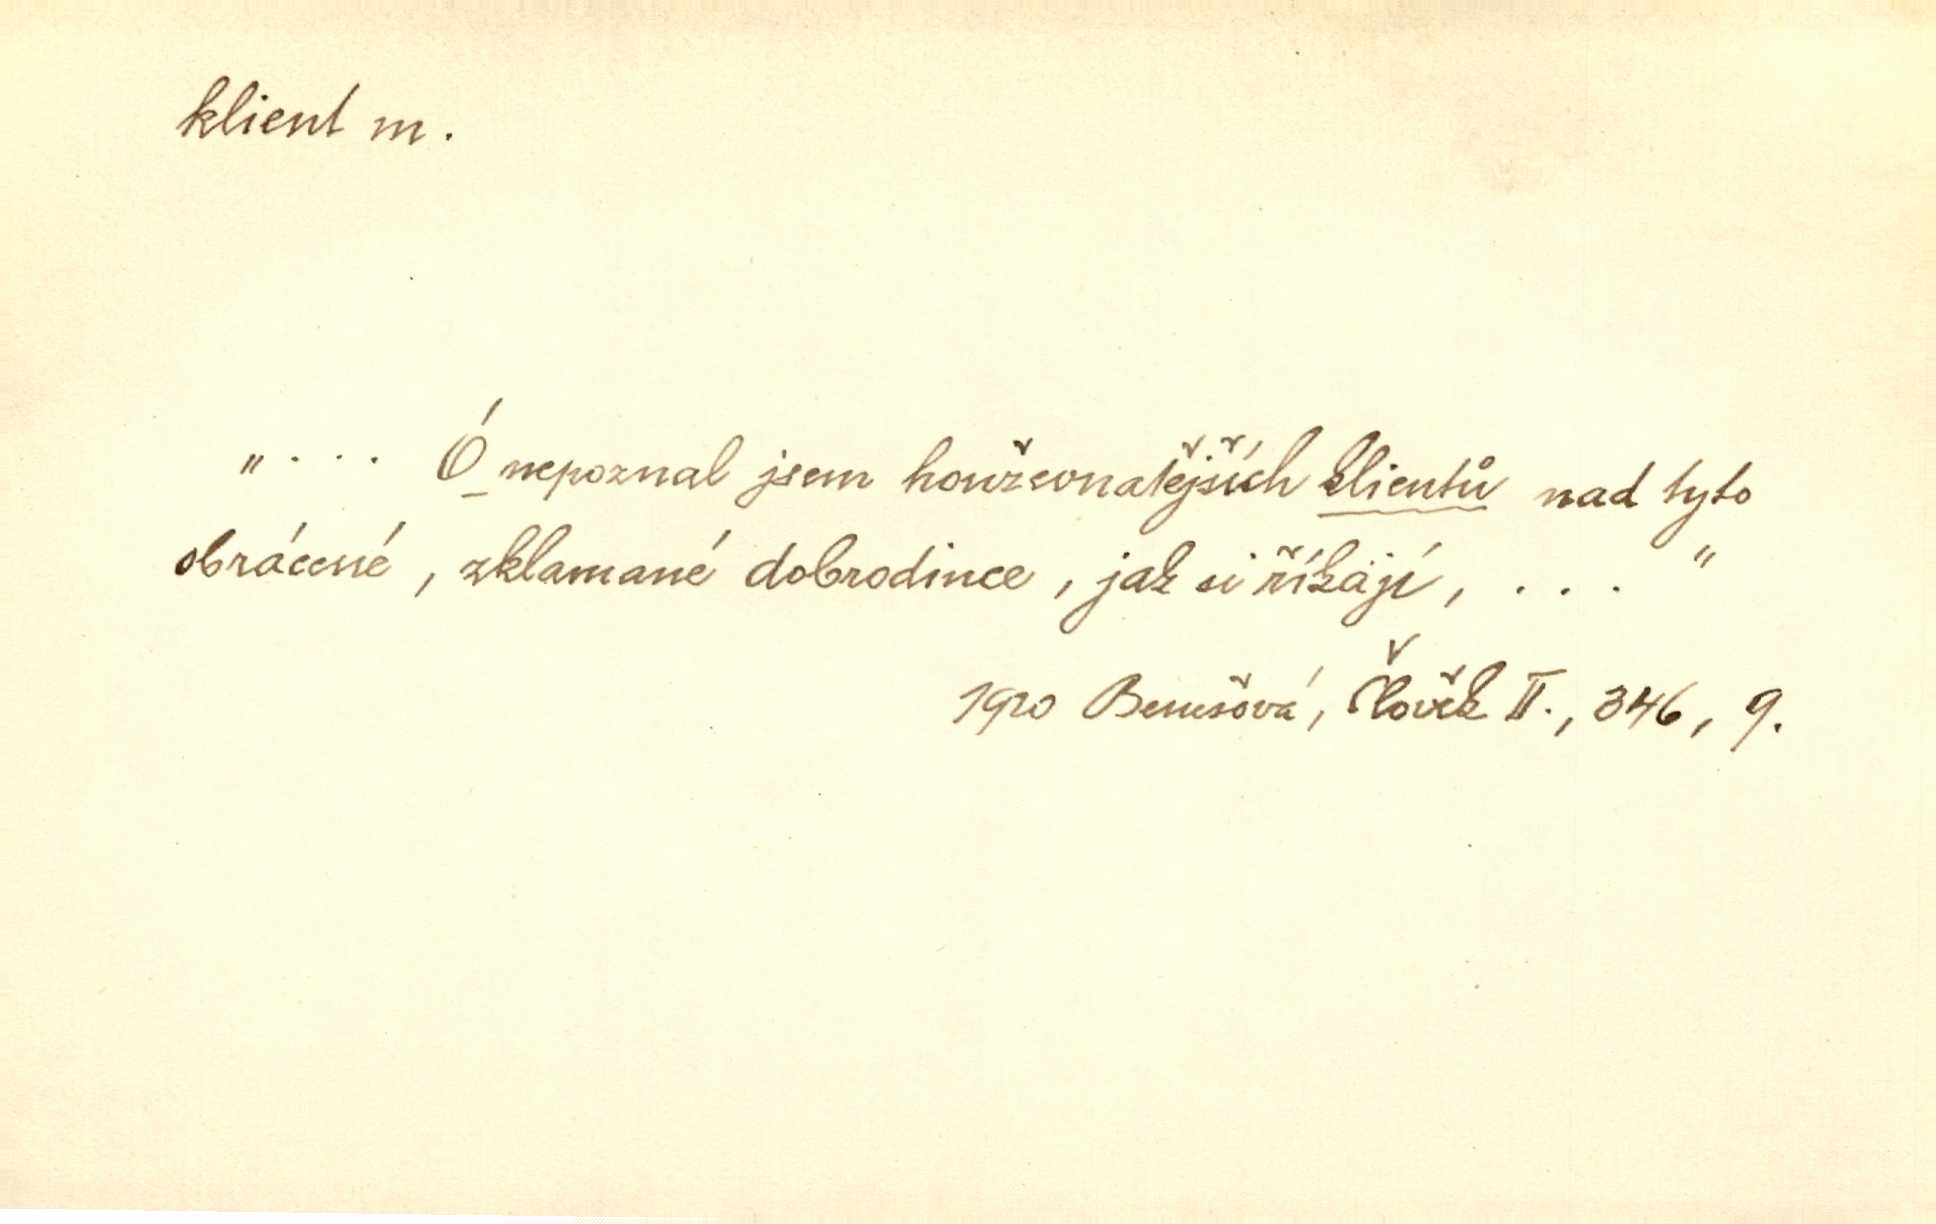 klient m.
„ . . . Ó nepoznal jsem houževnatějších klientů nad tyto
obrácené, zklamané dobrodince, jak si říkají, . . . "
1920 Benešová, Člověk II., 346, 9.